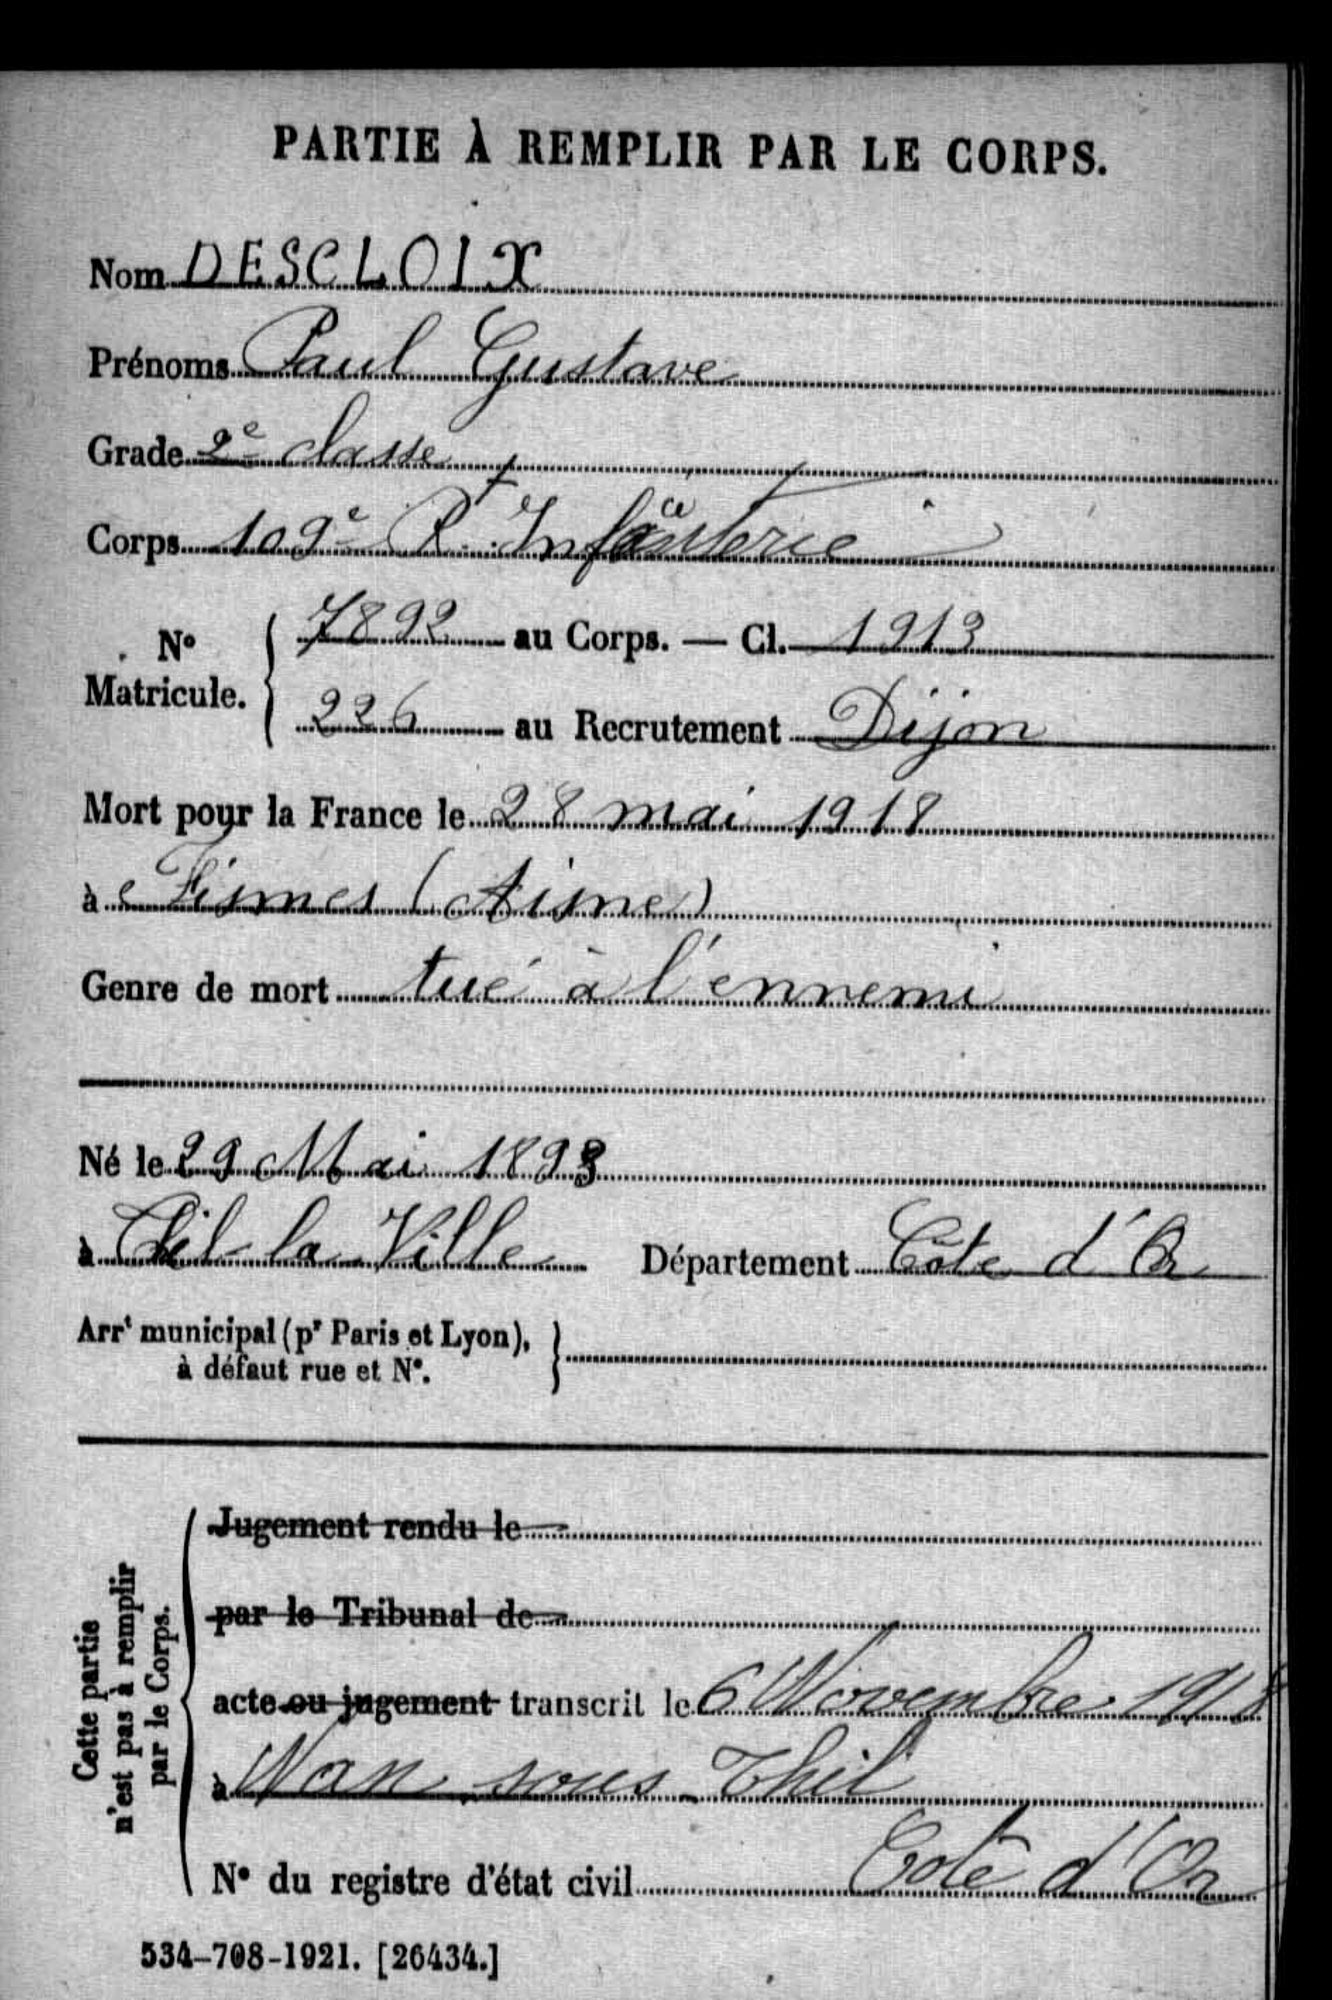 PARTIE À REMPLIR PAR LE CORPS.
Nom DESCLOIX
Prénoms Paul Gustave
Grade 2e classe
Corps 109e Rt Infanterie
No Matricule. 7892 au Corps. — Cl. 1913
226 au Recrutement Dijon
Mort pour la France le 28 mai 1918
à Fismes (Aisne)
Genre de mort tué à l'ennemi
Né le 29 Mai 1893
à Thil la Ville Département Côte d'Or
Arrt municipal (pr Paris et Lyon),
à défaut rue et No.
Cette partie
n'est pas à remplir
par le Corps.
Jugement rendu le
par le Tribunal de
acte ou jugement transcrit le 6 Novembre 1918
à Nan sous Thil
No du registre d'état civil Cote d'Or
534-708-1921. [26434.]